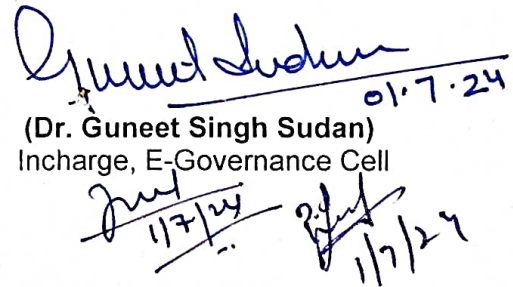 Guneet Sudan
01.7.24
(Dr. Guneet Singh Sudan)
Incharge, E-Governance Cell
1/7/24
1/7/24